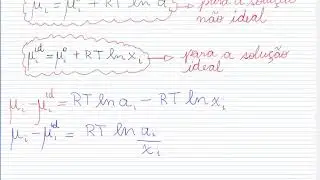 μᵢ = μᵢ° + RT ln aᵢ → para a solução
não ideal
μᵢ^id = μᵢ° + RT ln xᵢ → para a solução
ideal
μᵢ - μᵢ^id = RT ln aᵢ - RT ln xᵢ
μᵢ - μᵢ^id = RT ln aᵢ/xᵢ